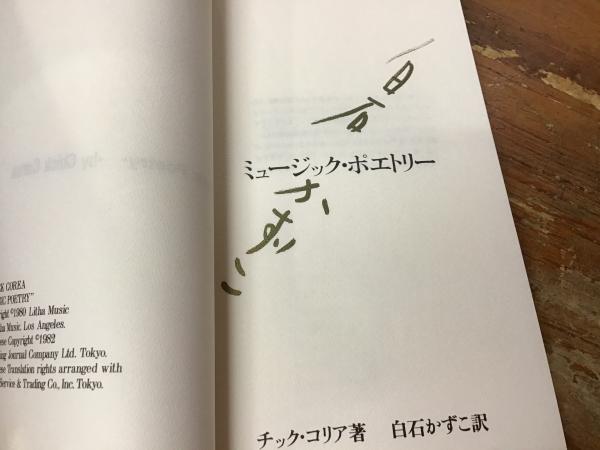 K COREA
IC POETRY"
right ©1980 Litha Music
ha Music. Los Angeles.
ese Copyright ©1982
ing Journal Company Ltd. Tokyo.
ese Translation rights arranged with
Service & Trading Co., Inc. Tokyo.
白石
ミュージック・ポエトリー
かずこ
チック・コリア著 白石かずこ訳